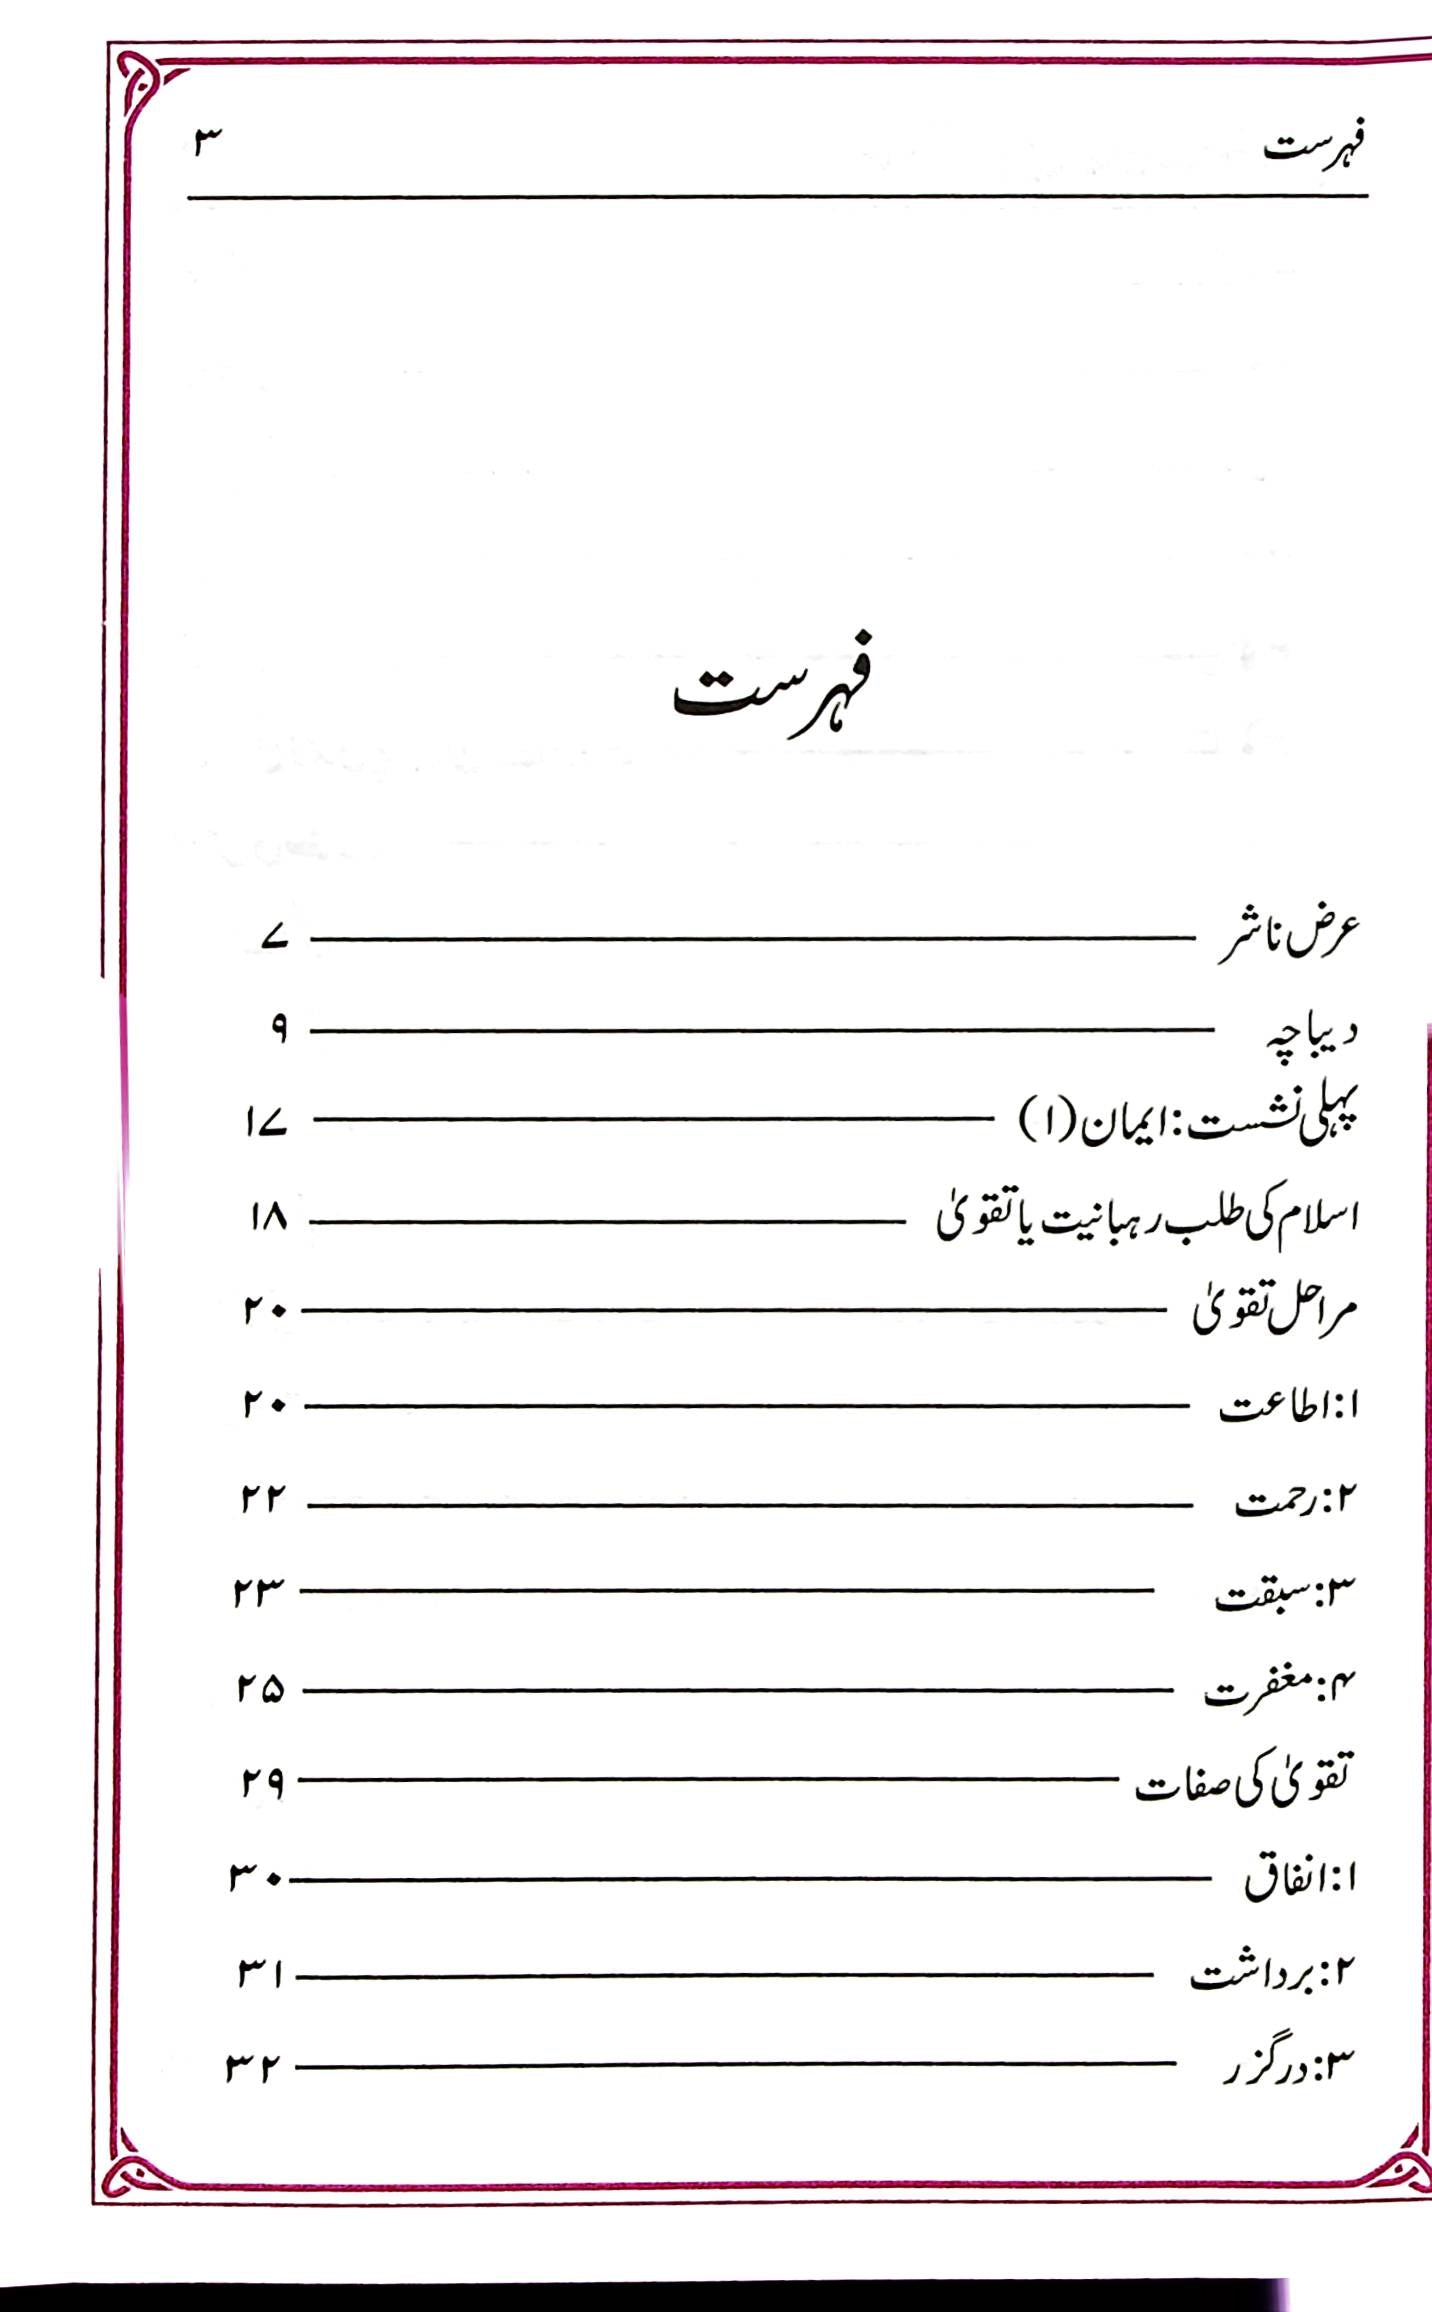 فہرست ۳
فہرست
عرض ناشر ۷
دیباچہ ۹
پہلی نشست: ایمان (۱) ۱۷
اسلام کی طلب رہبانیت یا تقویٰ ۱۸
مراحل تقویٰ ۲۰
۱: اطاعت ۲۰
۲: رحمت ۲۲
۳: سبقت ۲۳
۴: مغفرت ۲۵
تقویٰ کی صفات ۲۹
۱: انفاق ۳۰
۲: برداشت ۳۱
۳: درگزر ۳۲